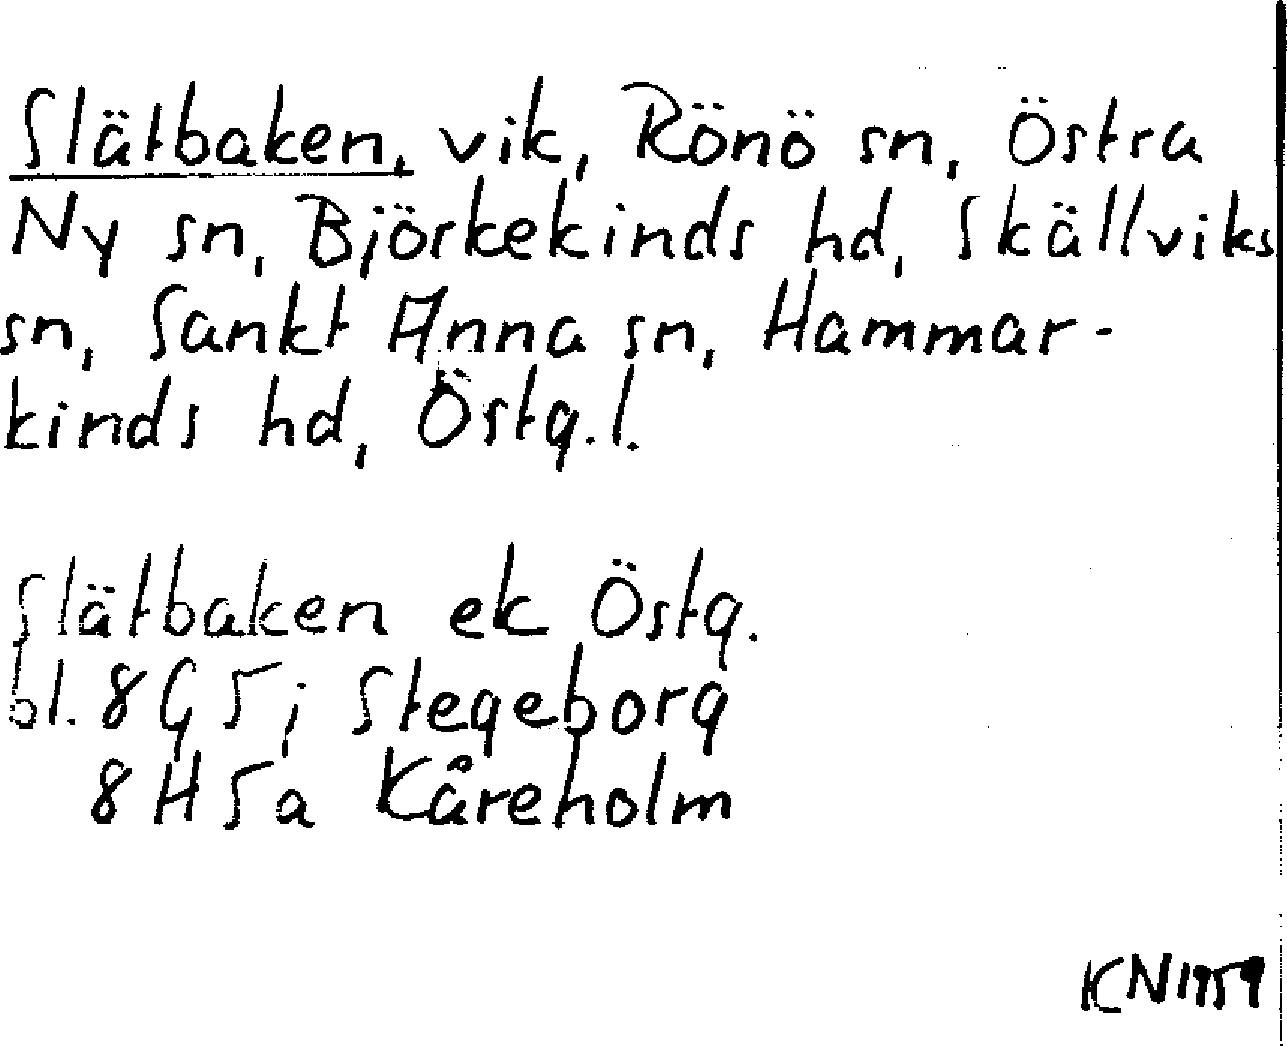 Slätbaken, vik, Rönö sn, Östra
Ny sn, Björkekinds hd, Skällviks
sn, Sankt Anna sn, Hammar-
kinds hd, Östg.l.
Slätbaken ek Östg.
bl. 8G 5j Stegeborg
8H 5a Kåreholm
KN1959